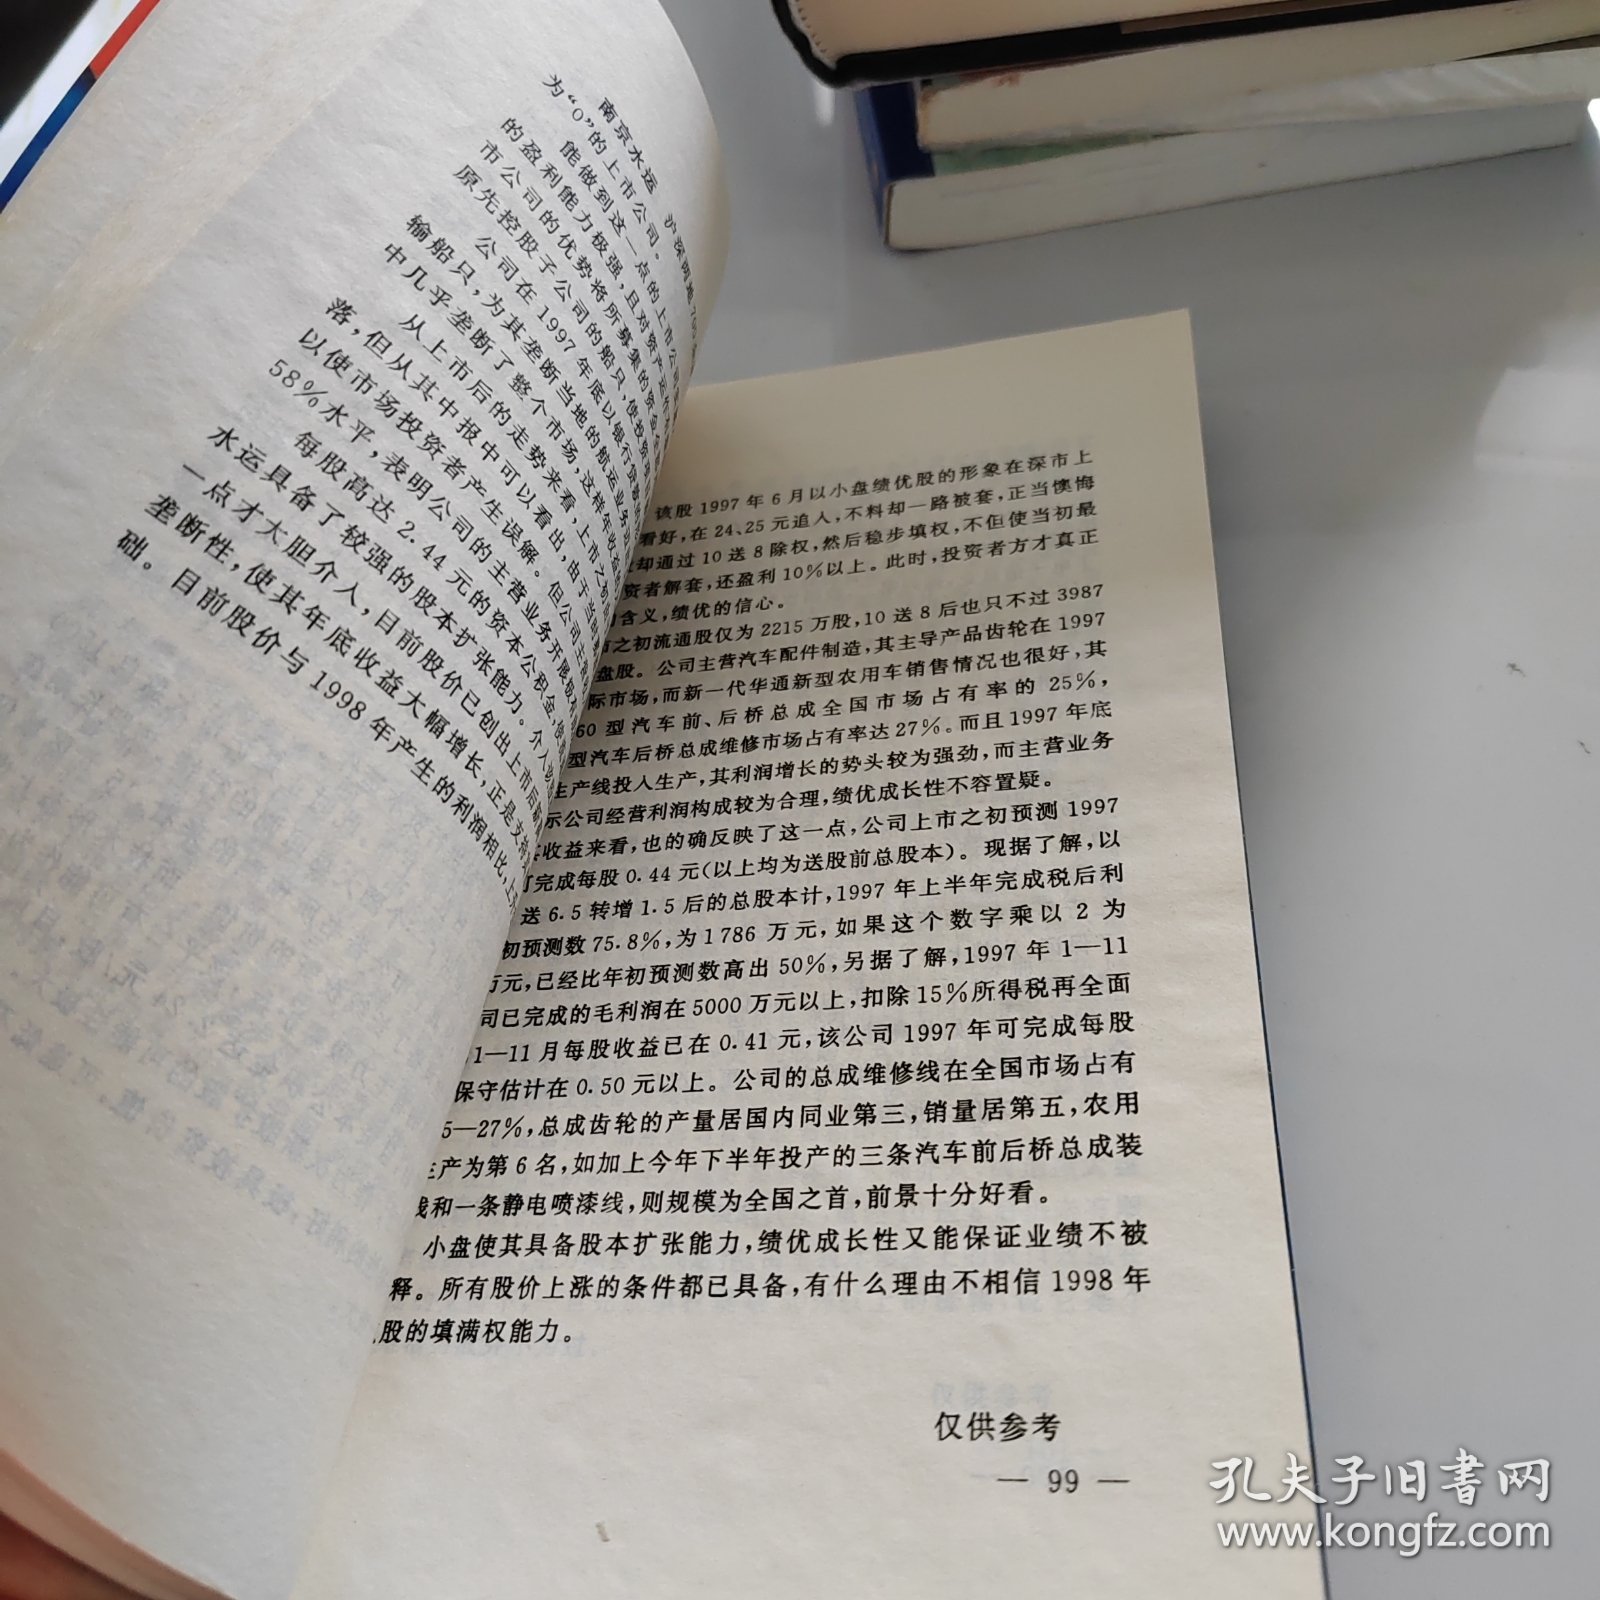 南京水运 沪深两地
为“0”的上市公司。
能做到这一点的上市公司
的盈利能力极强,且对资产运作
市公司的优势将所募集的资金
原先控股子公司的船只,使投资
公司在1997年底以银行贷
输船只,为其垄断当地的航运业务
中几乎垄断了整个市场,这样年收益
从上市后的走势来看,上市之初
落,但从其中报中可以看出,由于当时
以使市场投资者产生误解。但公司主
58%水平,表明公司的主营业务开展
每股高达2.44元的资本公积金,
水运具备了较强的股本扩张能力。介入
一点才大胆介人,目前股价已创出上市后
垄断性,使其年底收益大幅增长,正是支
础。目前股价与1998年产生的利润相比,上
该股1997年6月以小盘绩优股的形象在深市上
看好,在24、25元追人,不料却一路被套,正当懊悔
却通过10送8除权,然后稳步填权,不但使当初最
资者解套,还盈利10%以上。此时,投资者方才真正
含义,绩优的信心。
市之初流通股仅为2215万股,10送8后也只不过3987
盘股。公司主营汽车配件制造,其主导产品齿轮在1997
际市场,而新一代华通新型农用车销售情况也很好,其
60型汽车前、后桥总成全国市场占有率的25%,
型汽车后桥总成维修市场占有率达27%。而且1997年底
生产线投人生产,其利润增长的势头较为强劲,而主营业务
示公司经营利润构成较为合理,绩优成长性不容置疑。
收益来看,也的确反映了这一点,公司上市之初预测1997
可完成每股0.44元(以上均为送股前总股本)。现据了解,以
送6.5转增1.5后的总股本计,1997年上半年完成税后利
初预测数75.8%,为1786万元,如果这个数字乘以2为
万元,已经比年初预测数高出50%,另据了解,1997年1—11
司已完成的毛利润在5000万元以上,扣除15%所得税再全面
1—11月每股收益已在0.41元,该公司1997年可完成每股
保守估计在0.50元以上。公司的总成维修线在全国市场占有
5—27%,总成齿轮的产量居国内同业第三,销量居第五,农用
生产为第6名,如加上今年下半年投产的三条汽车前后桥总成装
线和一条静电喷漆线,则规模为全国之首,前景十分好看。
小盘使其具备股本扩张能力,绩优成长性又能保证业绩不被
释。所有股价上涨的条件都已具备,有什么理由不相信1998年
股的填满权能力。
仅供参考
— 99 —
孔夫子旧书网
www.kongfz.com